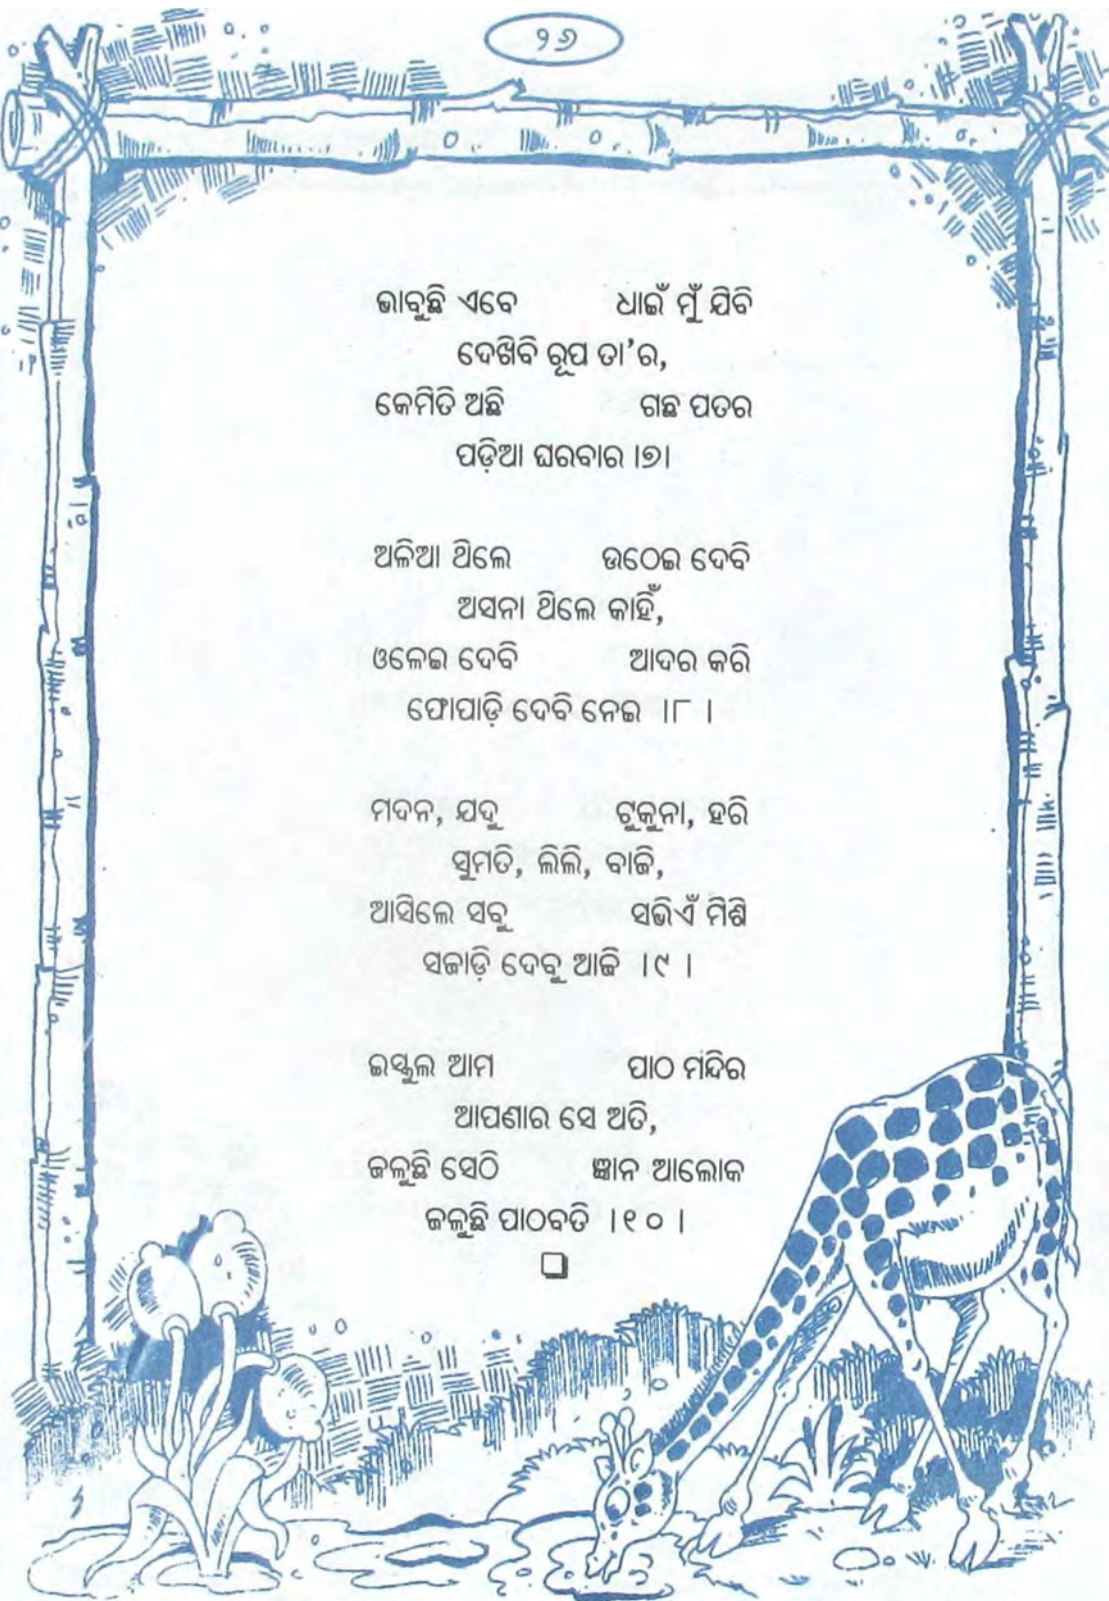 ୨୬
ଭାବୁଛି ଏବେ ଧାଇଁ ମୁଁ ଯିବି
ଦେଖିବି ରୂପ ତା'ର,
କେମିତି ଅଛି ଗଛ ପତର
ପଡ଼ିଆ ଘରବାର ।୭।
ଅଳିଆ ଥିଲେ ଉଠେଇ ଦେବି
ଅସନା ଥିଲେ କାହିଁ,
ଓଳେଇ ଦେବି ଆଦର କରି
ଫୋପାଡ଼ି ଦେବି ନେଇ ।୮ ।
ମଦନ, ଯଦୁ ଟୁକୁନା, ହରି
ସୁମତି, ଲିଲି, ବାଜି,
ଆସିଲେ ସବୁ ସଭିଏଁ ମିଶି
ସଜାଡ଼ି ଦେବୁ ଆଜି ।୯ ।
ଇସ୍କୁଲ ଆମ ପାଠ ମନ୍ଦିର
ଆପଣାର ସେ ଅତି,
ଜଳୁଛି ସେଠି ଜ୍ଞାନ ଆଲୋକ
ଜଳୁଛି ପାଠବତି ।୧୦ ।